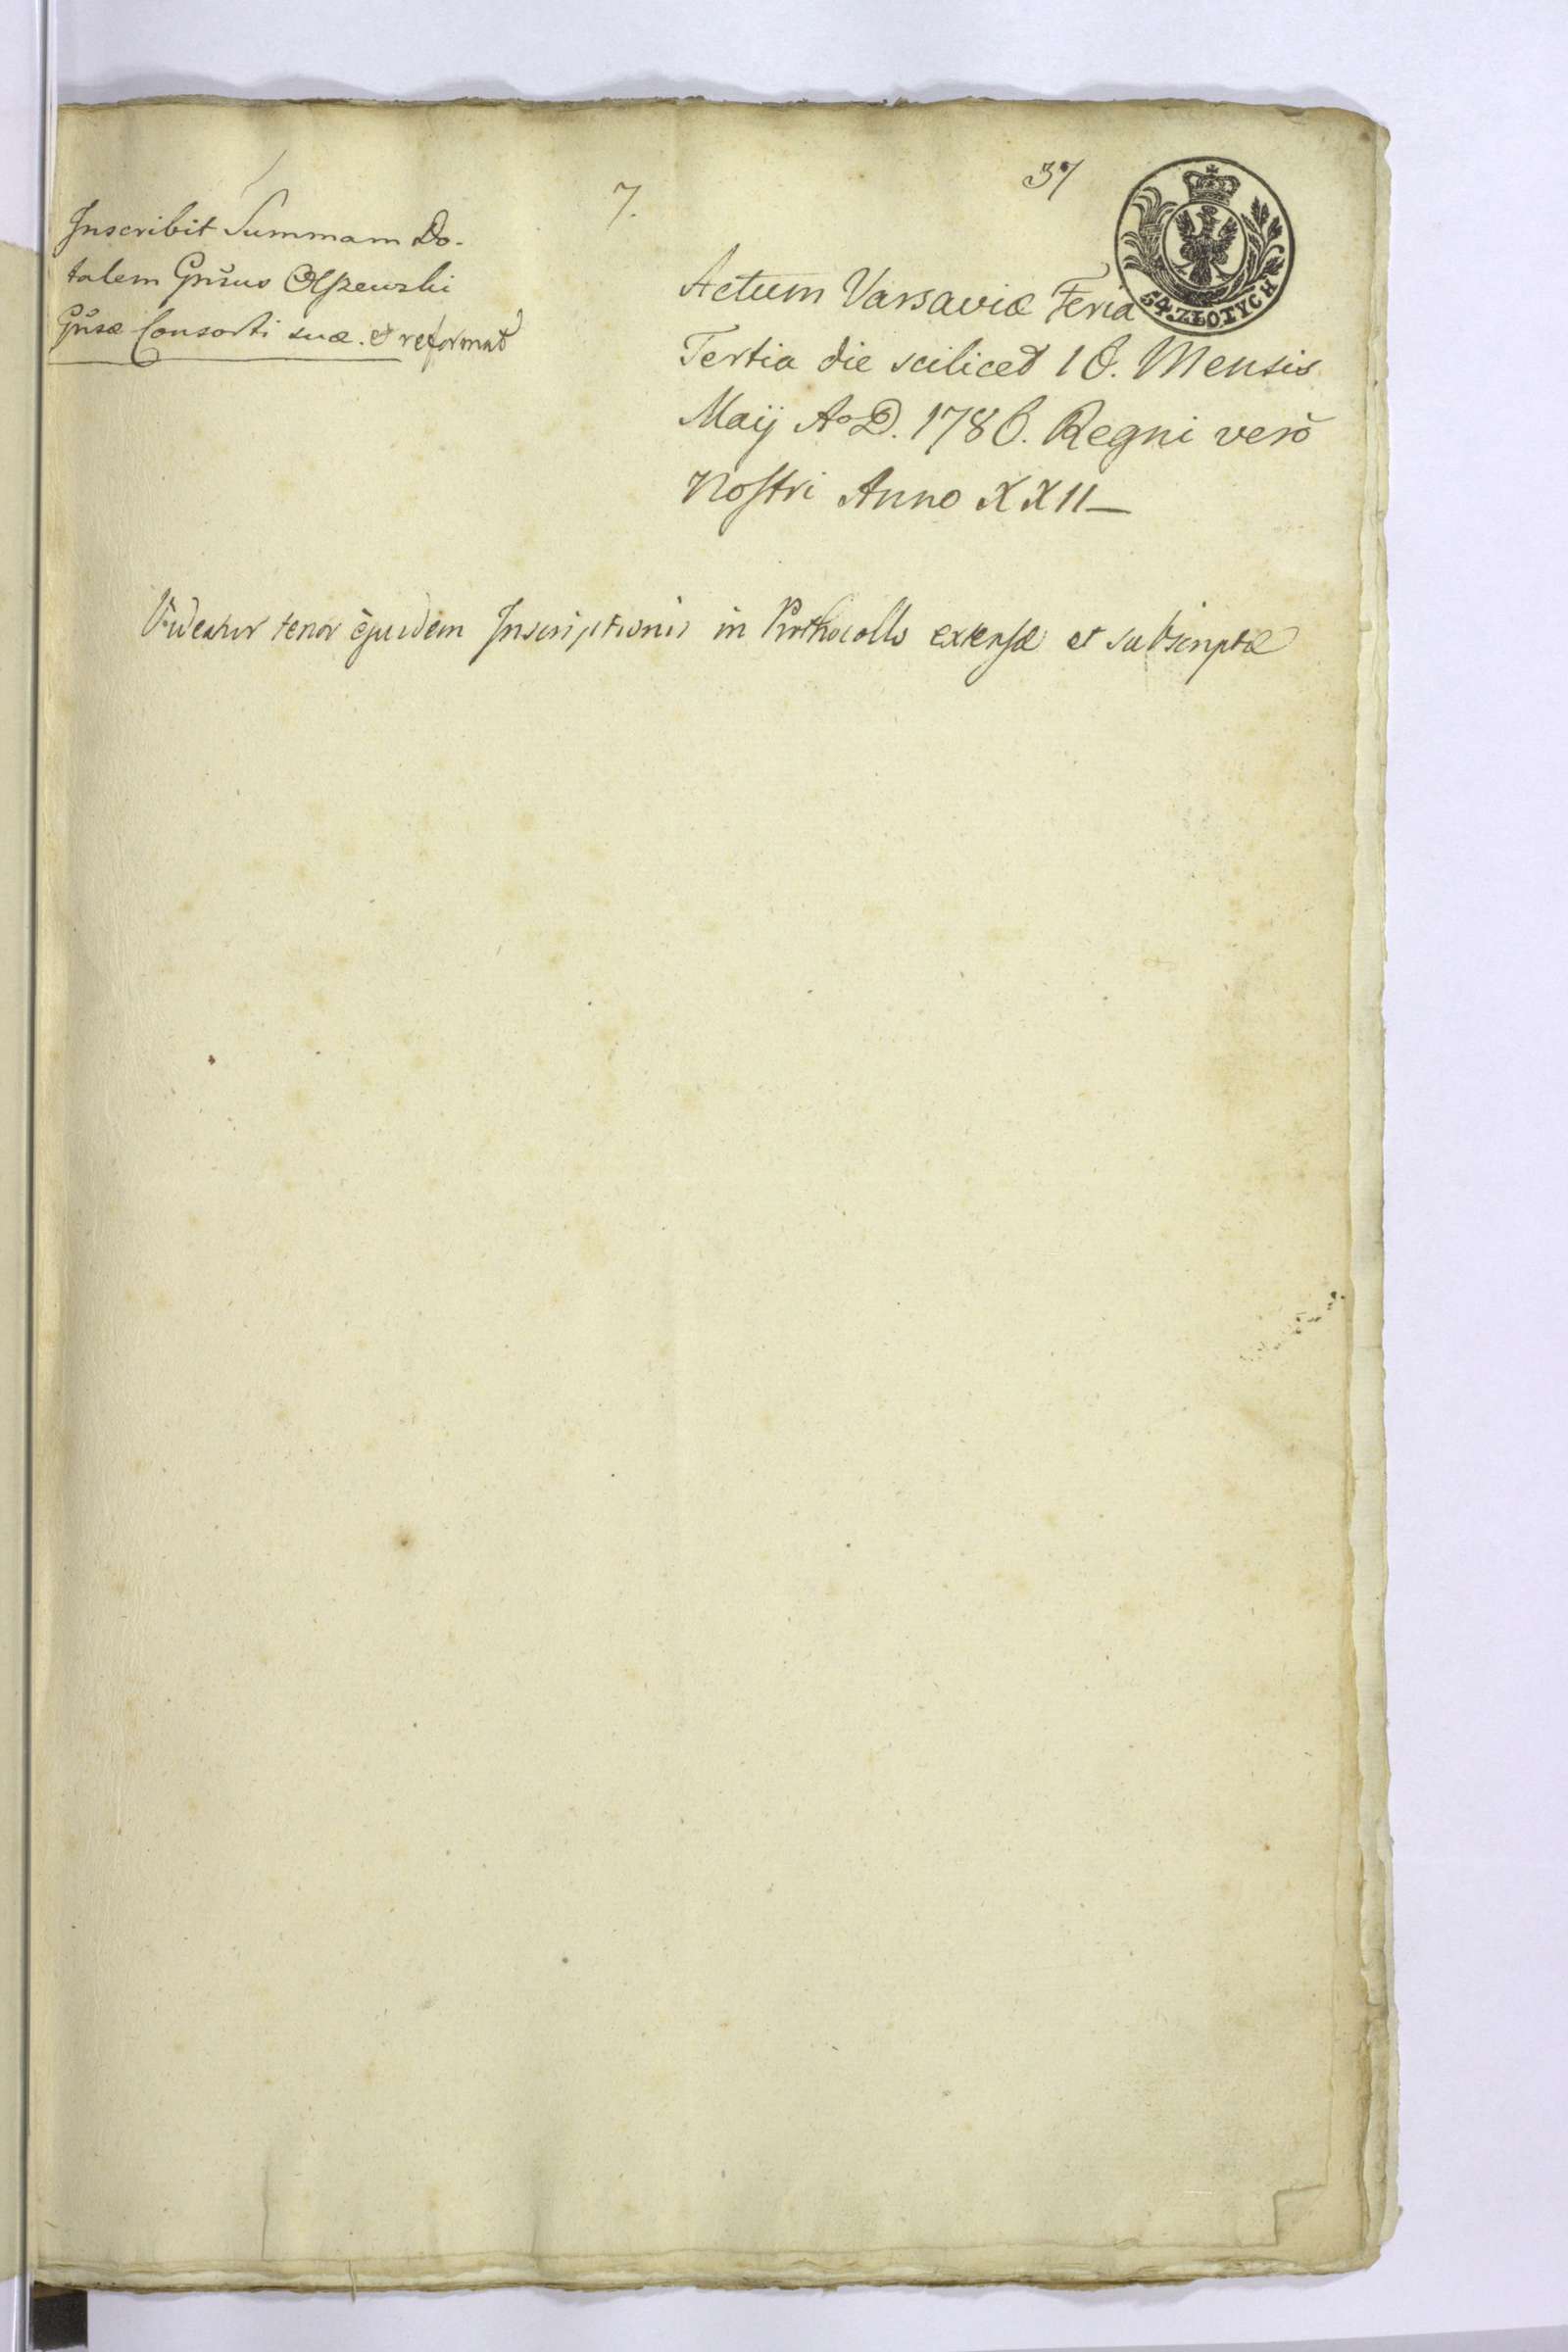 7.
37
54. ZŁOTYCH
Inscribit Summam Do-
talem Gnsus Olszewski
Gnsæ Consorti suæ. et reformat
Actum Varsaviæ Feria
Tertia die scilicet 16. Mensis
Maij Ao D. 1786. Regni verò
Nostri Anno XXII
Videatur tenor ejusdem Inscriptionis in Prothocollo extensæ et subscriptæ